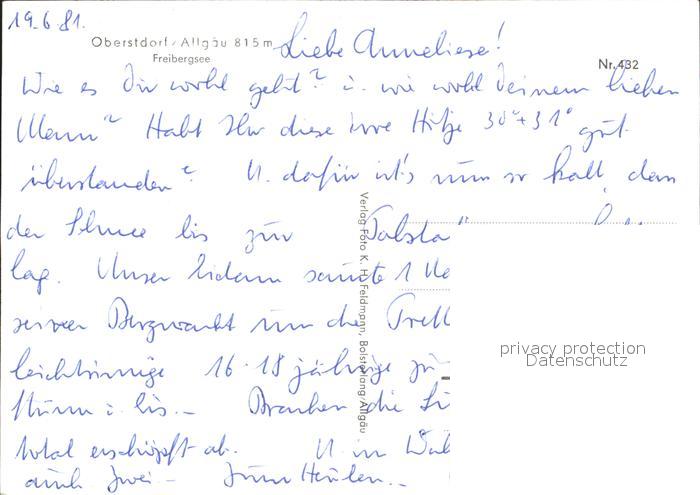 19.6.81.
Oberstdorf/Allgäu 815 m
Freibergsee
Nr. 432
Liebe Anneliese!
Wie es dir wohl geht? u. wie wohl deinem lieben
Mann? Habt Ihr diese irre Hitze 30°+31° gut
überstanden? U. dafür ist's nun so kalt, dass
der Schnee bis zur "Talsta
lag. Unser
seiner Bergwacht um die
leichtsinnige 16-18 jährige
Sturm u.
total erschöpft ab. U. in
auch zwei - zum Heulen.
Verlag Foto K. H. Feldmann, Bolsterlang/Allgäu
privacy protection
Datenschutz